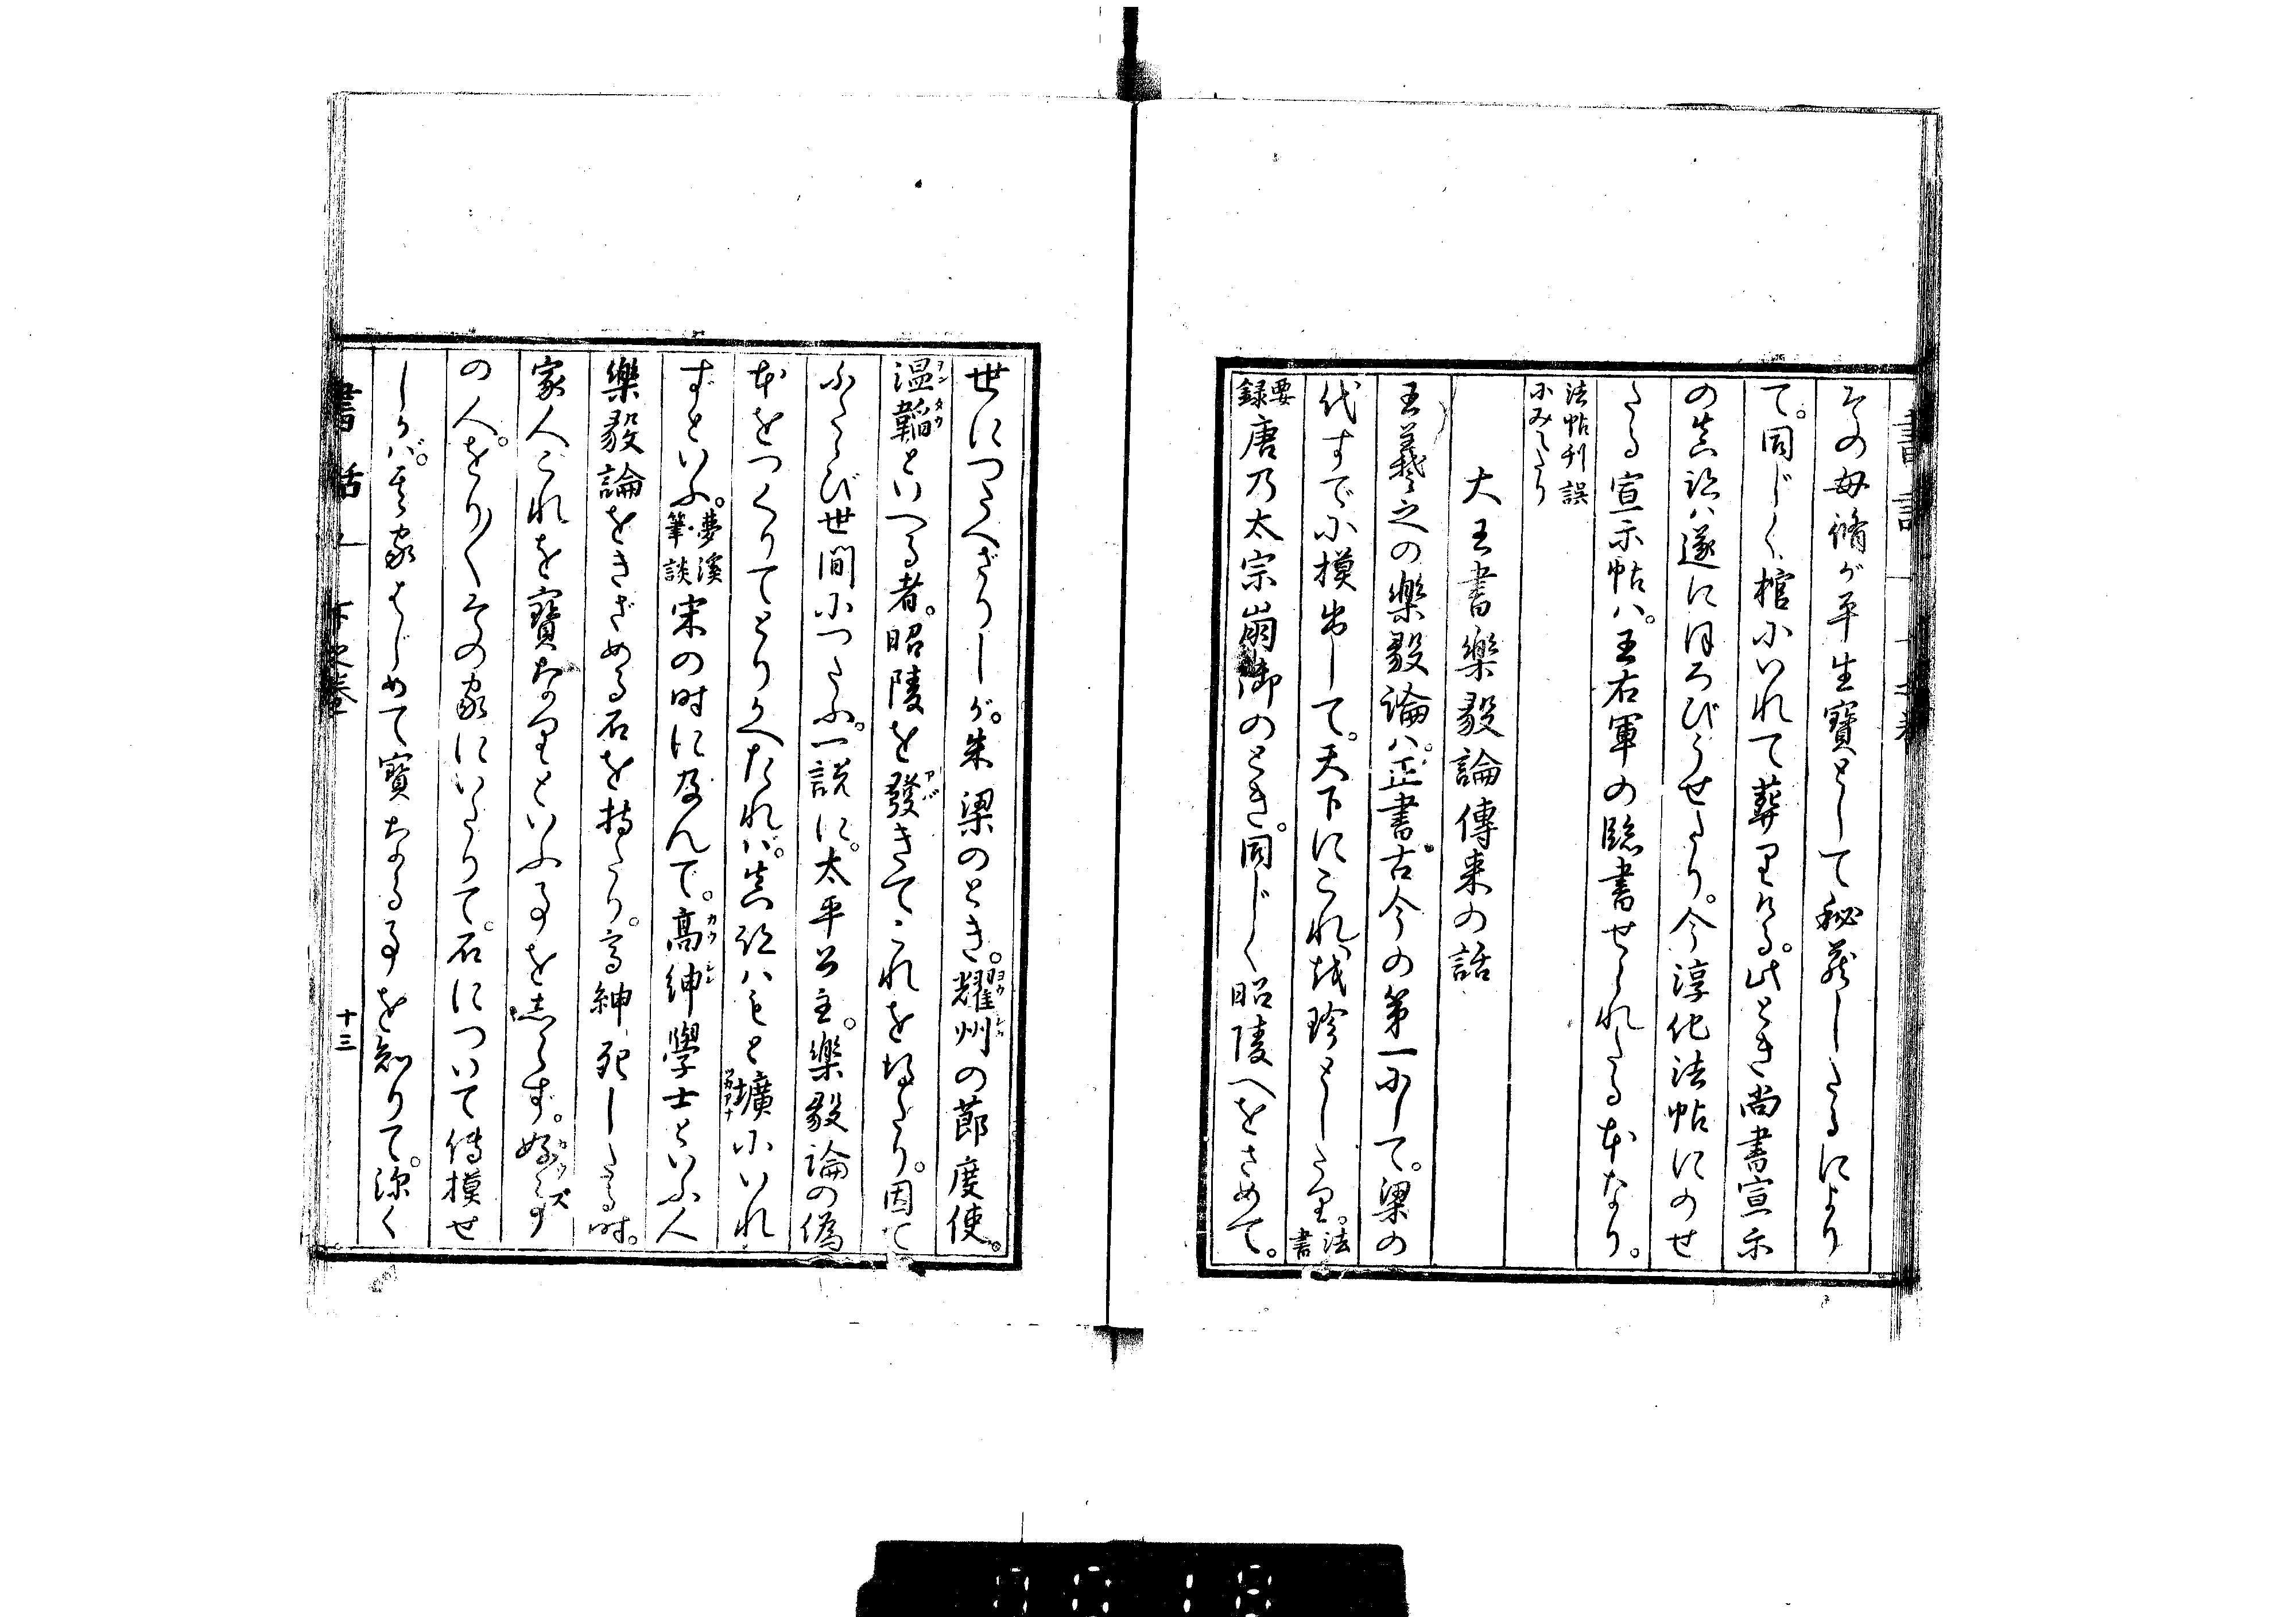 その母脩が平生寶として秘蔵したるにより
て。同じく棺にいれて葬りける。此とき尚書宣示
の真跡ハ遂にほろびうせたり。今淳化法帖にのせ
たる宣示帖ハ。王右軍の臨書せられたる本なり。
法帖刊誤
にみえたり
大王書樂毅論傳来の話
王羲之の樂毅論ハ。正書古今の第一にして。梁の
代すでに模出して。天下にこれを珍としたり。法書
要録唐乃太宗崩御のとき。同じく昭陵へをさめて。
世につたへざりしが。朱梁のとき。耀州の節度使。
温韜といへる者。昭陵を發きてこれを得たり。因て
ふたゝび世間につたふ。一説に。太平公主。樂毅論の偽
本をつくりてとりかへたれバ。真跡ハもと壙にいれ
ずといふ。夢溪筆談宋の時に及んで。高紳學士といふ人
樂毅論をきざめる石を持たり。高紳死したる時。
家人これを寶なりといふ事をしらず。好事
の人。をり〱その家にいたりて。石について傳模せ
しかバ。其家はじめて寶なる事を知りて。深く
書話一
十三